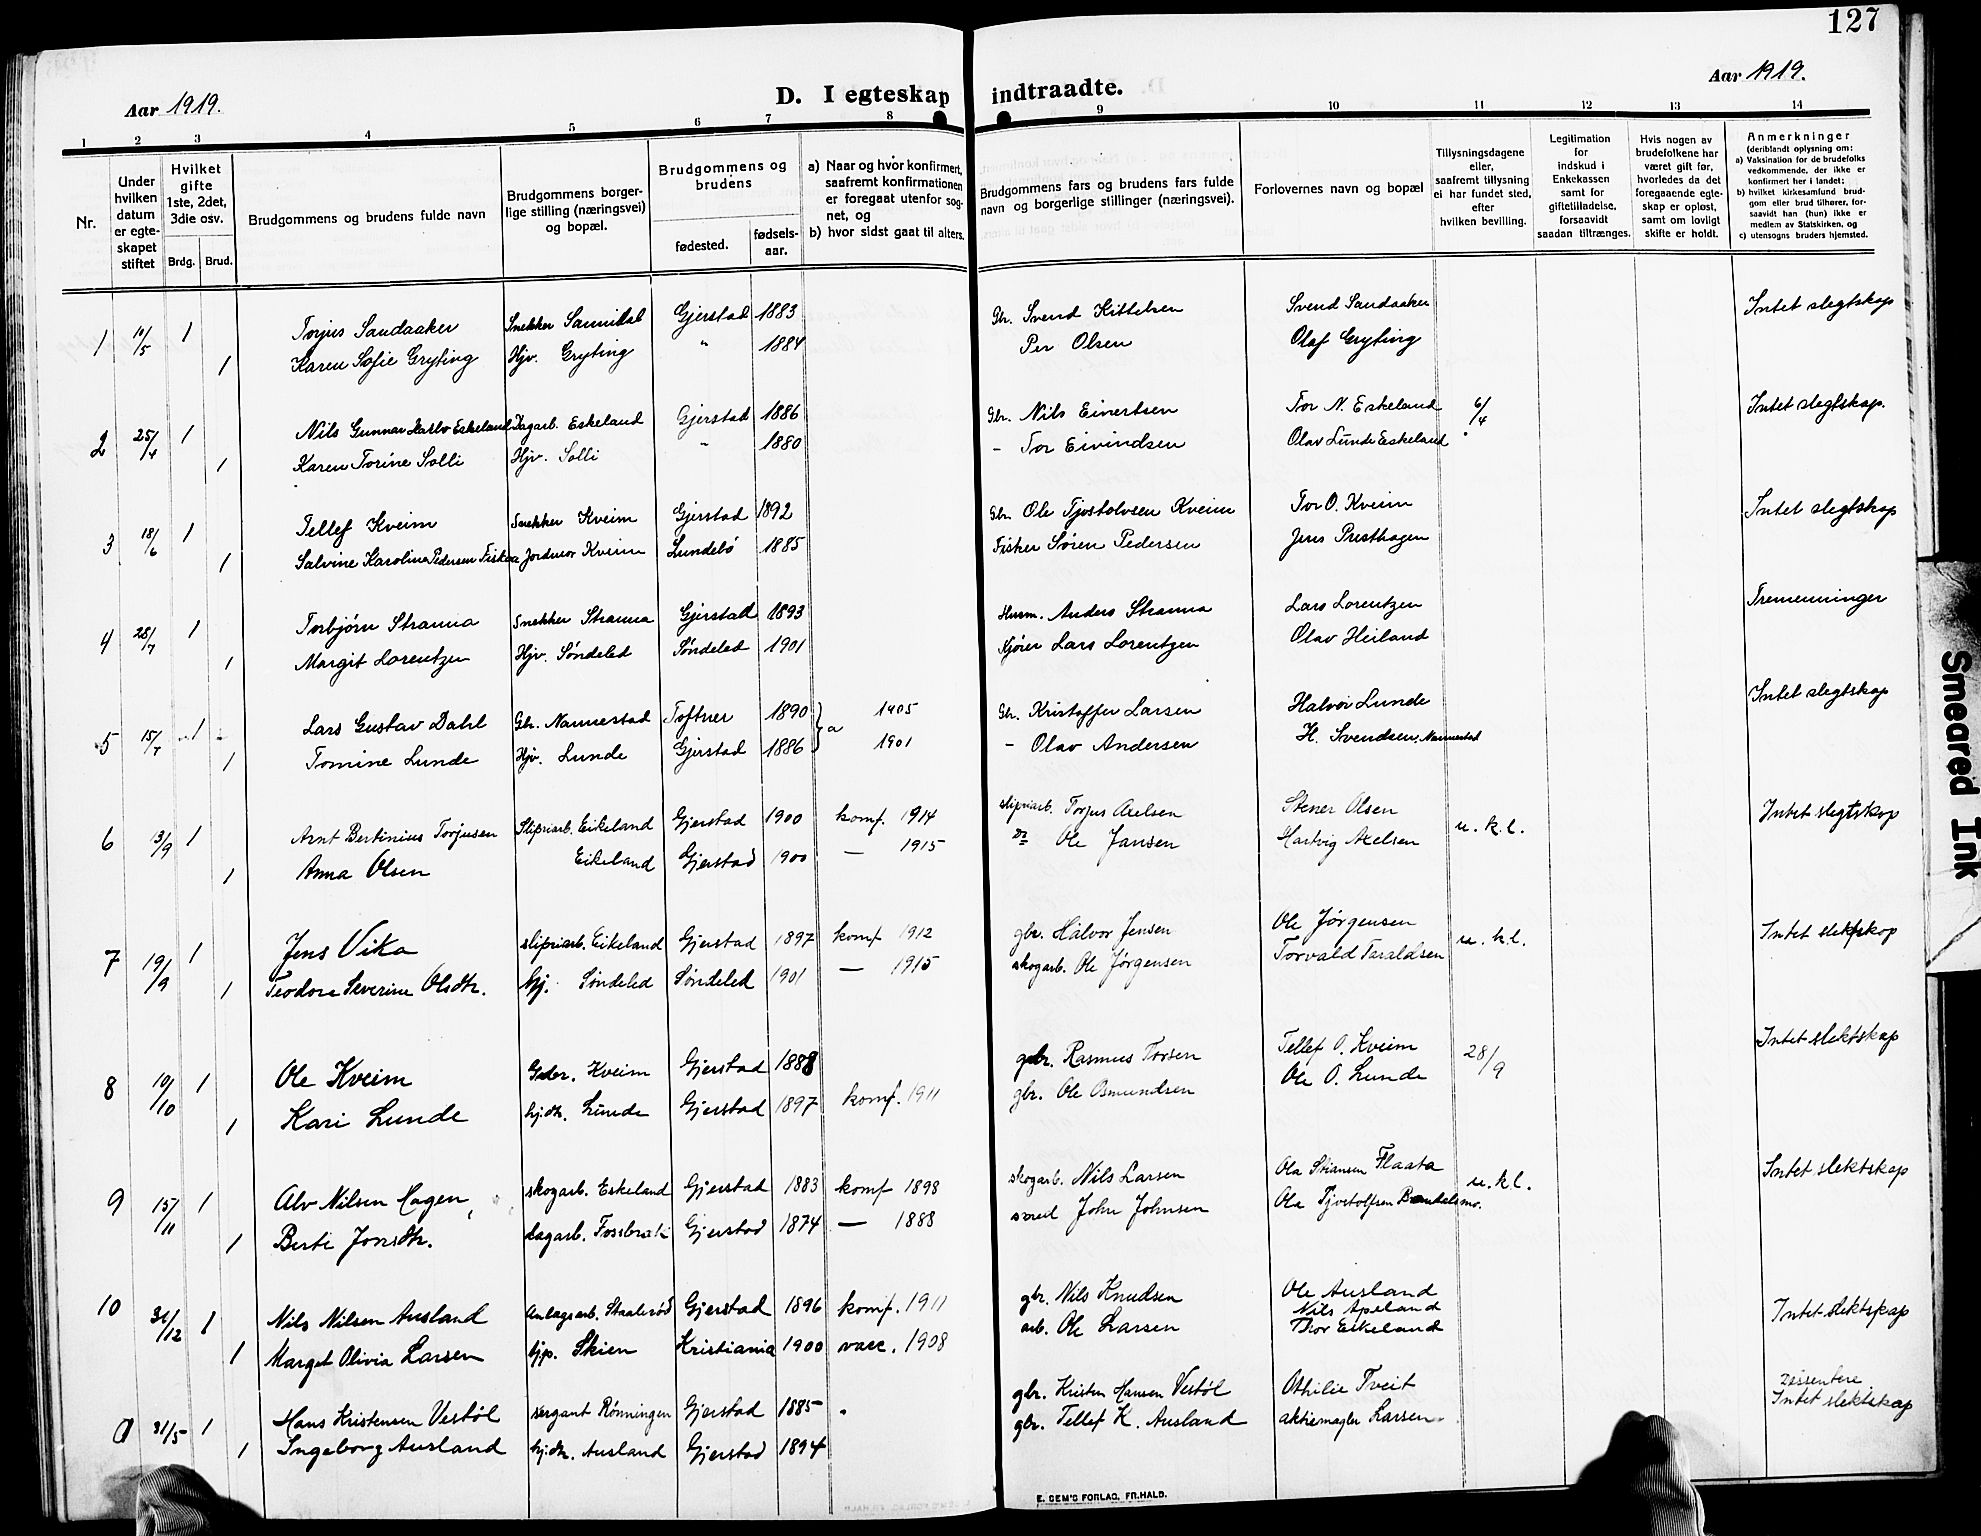 127
Aar 1919.
D. I egteskap indtraadte.
Aar 1919.
1 2 3 4 5 6 7 8 9 10 11 12 13 14
Nr.
Under hvilken datum er egteskapet stiftet
Hvilket gifte 1ste, 2det, 3die osv.
Brdg. Brud.
Brudgommens og brudens fulde navn
Brudgommens borgerlige stilling (næringsvei) og bopæl.
Brudgommens og brudens
fødested.
fødselsaar.
a) Naar og hvor konfirmert, saafremt konfirmationen er foregaat utenfor sognet, og
b) hvor sidst gaat til alters.
Brudgommens fars og brudens fars fulde navn og borgerlige stillinger (næringsvei).
Forlovernes navn og bopæl
Tillysningsdagene eller, saafremt tillysning ei har fundet sted, efter hvilken bevilling.
Legitimation for indskud i Enkekassen samt for giftetilladelse, forsaavidt saadan tiltrænges.
Hvis nogen av brudefolkene har været gift før, hvorledes da det foregaaende egteskap er opløst, samt om lovligt skifte er holdt.
Anmerkninger (deriblandt oplysning om:
a) Vaksination for de brudefolks vedkommende, der ikke er konfirmert her i landet;
b) hvilket kirkesamfund brudgom eller brud tilhører, forsaavidt han (hun) ikke er medlem av Statskirken, og
c) utensogns bruders hjemsted.
1 10/5 1 Torjus Sandaaker Snekker Sannidal Gjerstad 1883 Gbr. Svend Kittelsen Svend Sandaaker Intet slegtskap
1 Karen Sofie Gryting Hjv. Gryting " 1884 Per Olsen Olaf Gryting
2 25/4 1 Nils Gunnar Haslo Eskeland Dagarb. Eskeland Gjerstad 1886 Gbr. Nils Einertsen Tor N. Eskeland 6/4 Intet slegtskap.
1 Karen Torine Solli Hjv. Solli " 1880 - Tor Eivindsen Olav Lunde Eskeland
3 18/6 1 Tellef Kveim Snekker Kveim Gjerstad 1892 Gbr. Ole Tjostolvsen Kveim Tor O. Kveim Intet slegtskap
1 Salvine Karoline Pedersen Jordmor Kveim Lundebö 1885 Fisker Søren Pedersen Jens Presthagen
4 28/7 1 Torbjørn Stranna Snekker Stranna Gjerstad 1893 Husm. Anders Stranna Lars Lorentzen Tremenninger
1 Margit Lorentzen Hjv. Søndeled Søndeled 1901 Kjører Lars Lorentzen Olav Heiland
5 15/7 1 Lars Gustav Dahl Gbr. Nannestad 1890 a 1905 Gbr. Kristoffer Larsen Halvor Lunde Intet slegtskap
1 Tomine Lunde Hjv. Lunde Gjerstad 1886 1901 - Olav Andersen H. Svendsen, Nannestad
6 13/9 1 Arnt Bertinius Torjusen Slipriarb. Eikeland Gjerstad 1900 komf. 1914 slipriarb. Torjus Axelsen Stener Olsen u.k.l. Intet slegtskap
1 Anna Olsen Eikeland Gjerstad 1900 — 1915 Ole Jansen Hartvig Axelsen
7 19/9 1 Jens Vika slipriarb. Eikeland Gjerstad 1897 komf 1912 gbr. Halvor Jensen Ole Jørgensen u.k.l. Intet slektskap
1 Teodora Severine Olsdtr. hj. Søndeled Søndeled 1901 — 1915 skogarb. Ole Jørgensen Torvald Taraldsen
8 10/10 1 Ole Kveim Gbr. Kveim Gjerstad 1888 gbr. Rasmus Torsen Tellef O. Kveim 28/9 Intet slektskap
1 Kari Lunde hj.dtr. Lunde Gjerstad 1897 komf. 1911 gbr. Ole Osmundsen Ole O. Lunde
9 15/11 1 Alv Nilsen Hagen, skogarb. Eskeland Gjerstad 1883 komf 1898 skogarb. Nils Larsen Ola Stiansen Flaata u.k.l. Intet slektskap
1 Berte Jonsdtr. dagarb. Fossbrekk Gjerstad 1874 — 1888 John Johnsen Ola Tjostolfsen
10 31/12 1 Nils Nilsen Ausland Anlagsarb. Staalerød Gjerstad 1896 komf. 1911 gbr. Nils Knudsen Ole Ausland Nils Apeland Intet slektskap
1 Margot Olivia Larsen hjp. Skien Kristiania 1900 vacc. 1908 arb. Ole Larsen Thor Eskeland
31/5 1 Hans Kristensen Vestøl sergant Rønningen Gjerstad 1885 gbr. Kristen Hansen Vestøl Othilie Tveit Dissentere Intet slektskap
1 Ingeborg Ausland hj.dtr. Ausland Gjerstad 1894 gbr. Tellef K. Ausland aktiemagler Larsen
E. SEM'S FORLAG, FR.HALD.
Smeared Ink